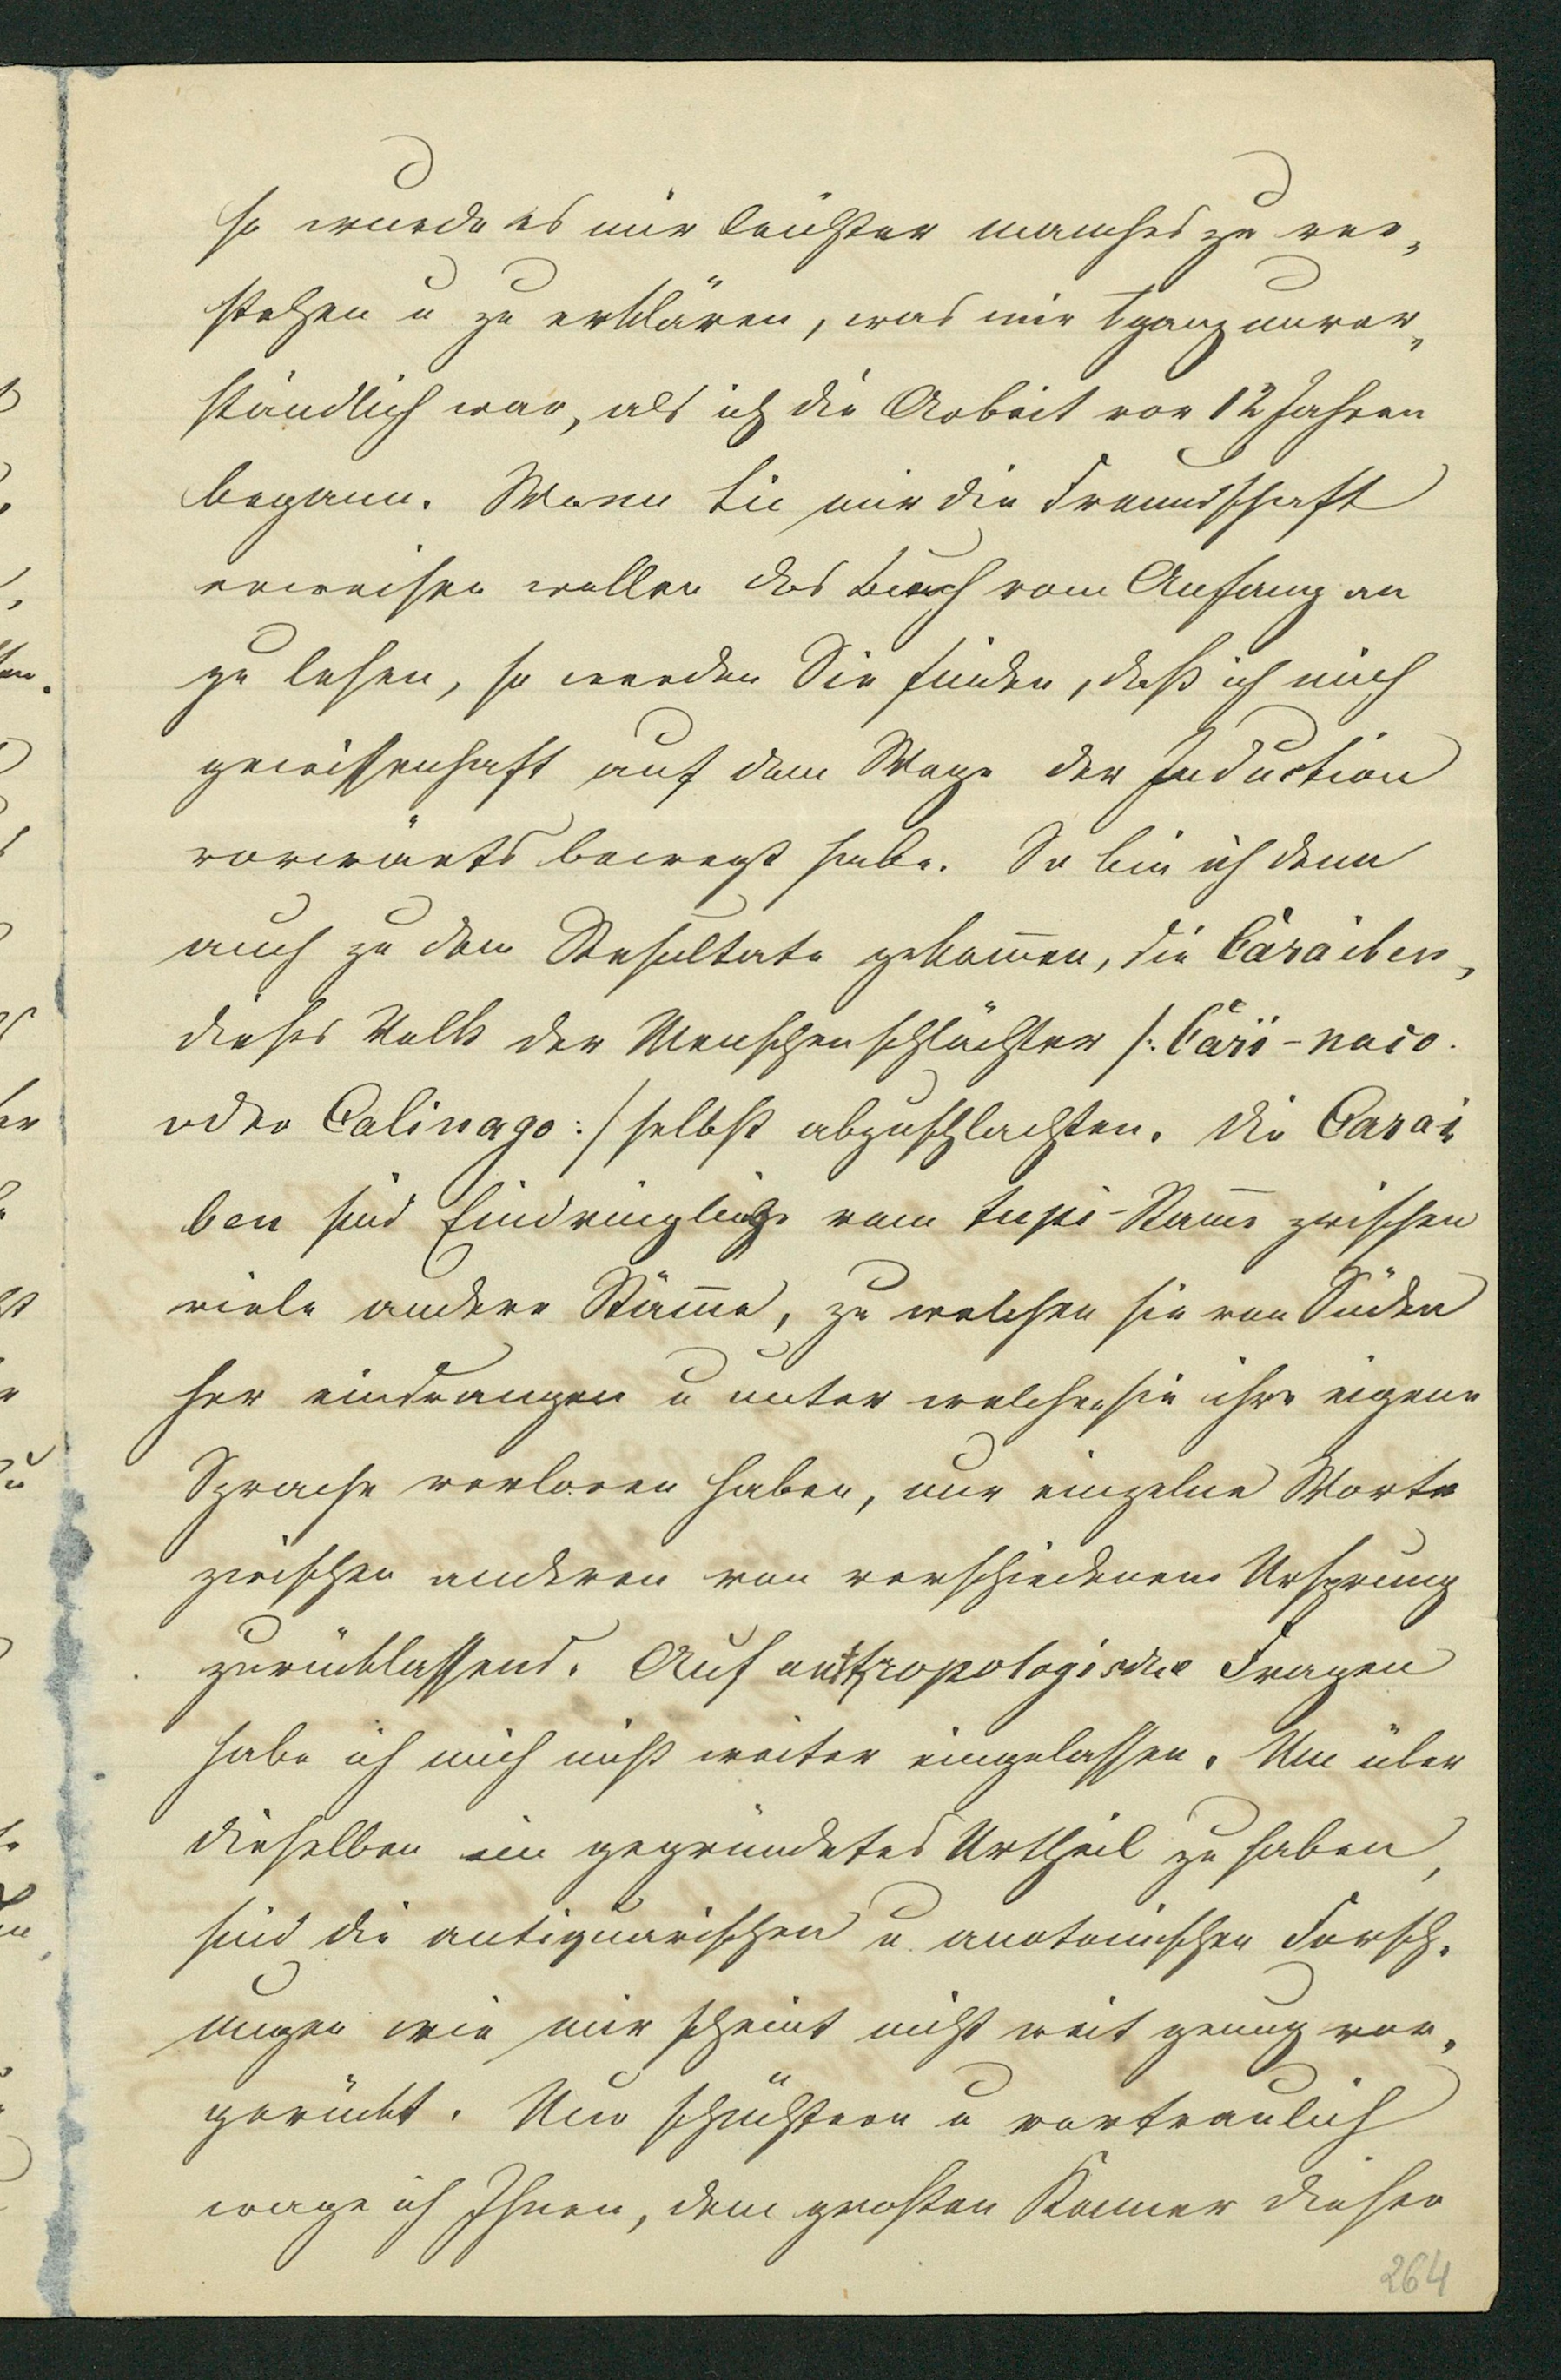 so wurde es mir leichter manches zu ver-
stehen u zu erklären, was mir ganz unver-
ständlich war, als ich die Arbeit vor 12 Jahren
begann. Wenn Sie mir die Freundschaft
erweisen wollen das Buch vom Anfang an
zu lesen, so werden Sie finden, daß ich mich
gewissenhaft auf dem Wege der Induction
vorwärts bewegt habe. So bin ich denn
auch zu dem Resultate gekom̄en, die Caraiben,
dieses Volk der Menschenschlächter /: Cari-
oder Calinago :/ selbst abzuschlachten. Die Carai-
ben sind Eindringlinge vom tupi-Stam̄e zwischen
viele andere Stäm̄e, zu welchen sie von Süden
her eindrangen u unter welchen sie ihre eigene
Sprache verloren haben, nur einzelne Worte
zwischen anderen von verschiedenem Ursprung
zurücklassend. Auf antropologische Fragen
habe ich mich nicht weiter eingelassen. Um über
dieselben ein gegründetes Urtheil zu haben,
sind die antiquarischen u. anatomischen Forsch-
ungen wie mir scheint nicht weit genug vor-
gerückt. Nur schüchtern u vertraulich
wage ich Ihnen, dem großen Kenner dieser
264